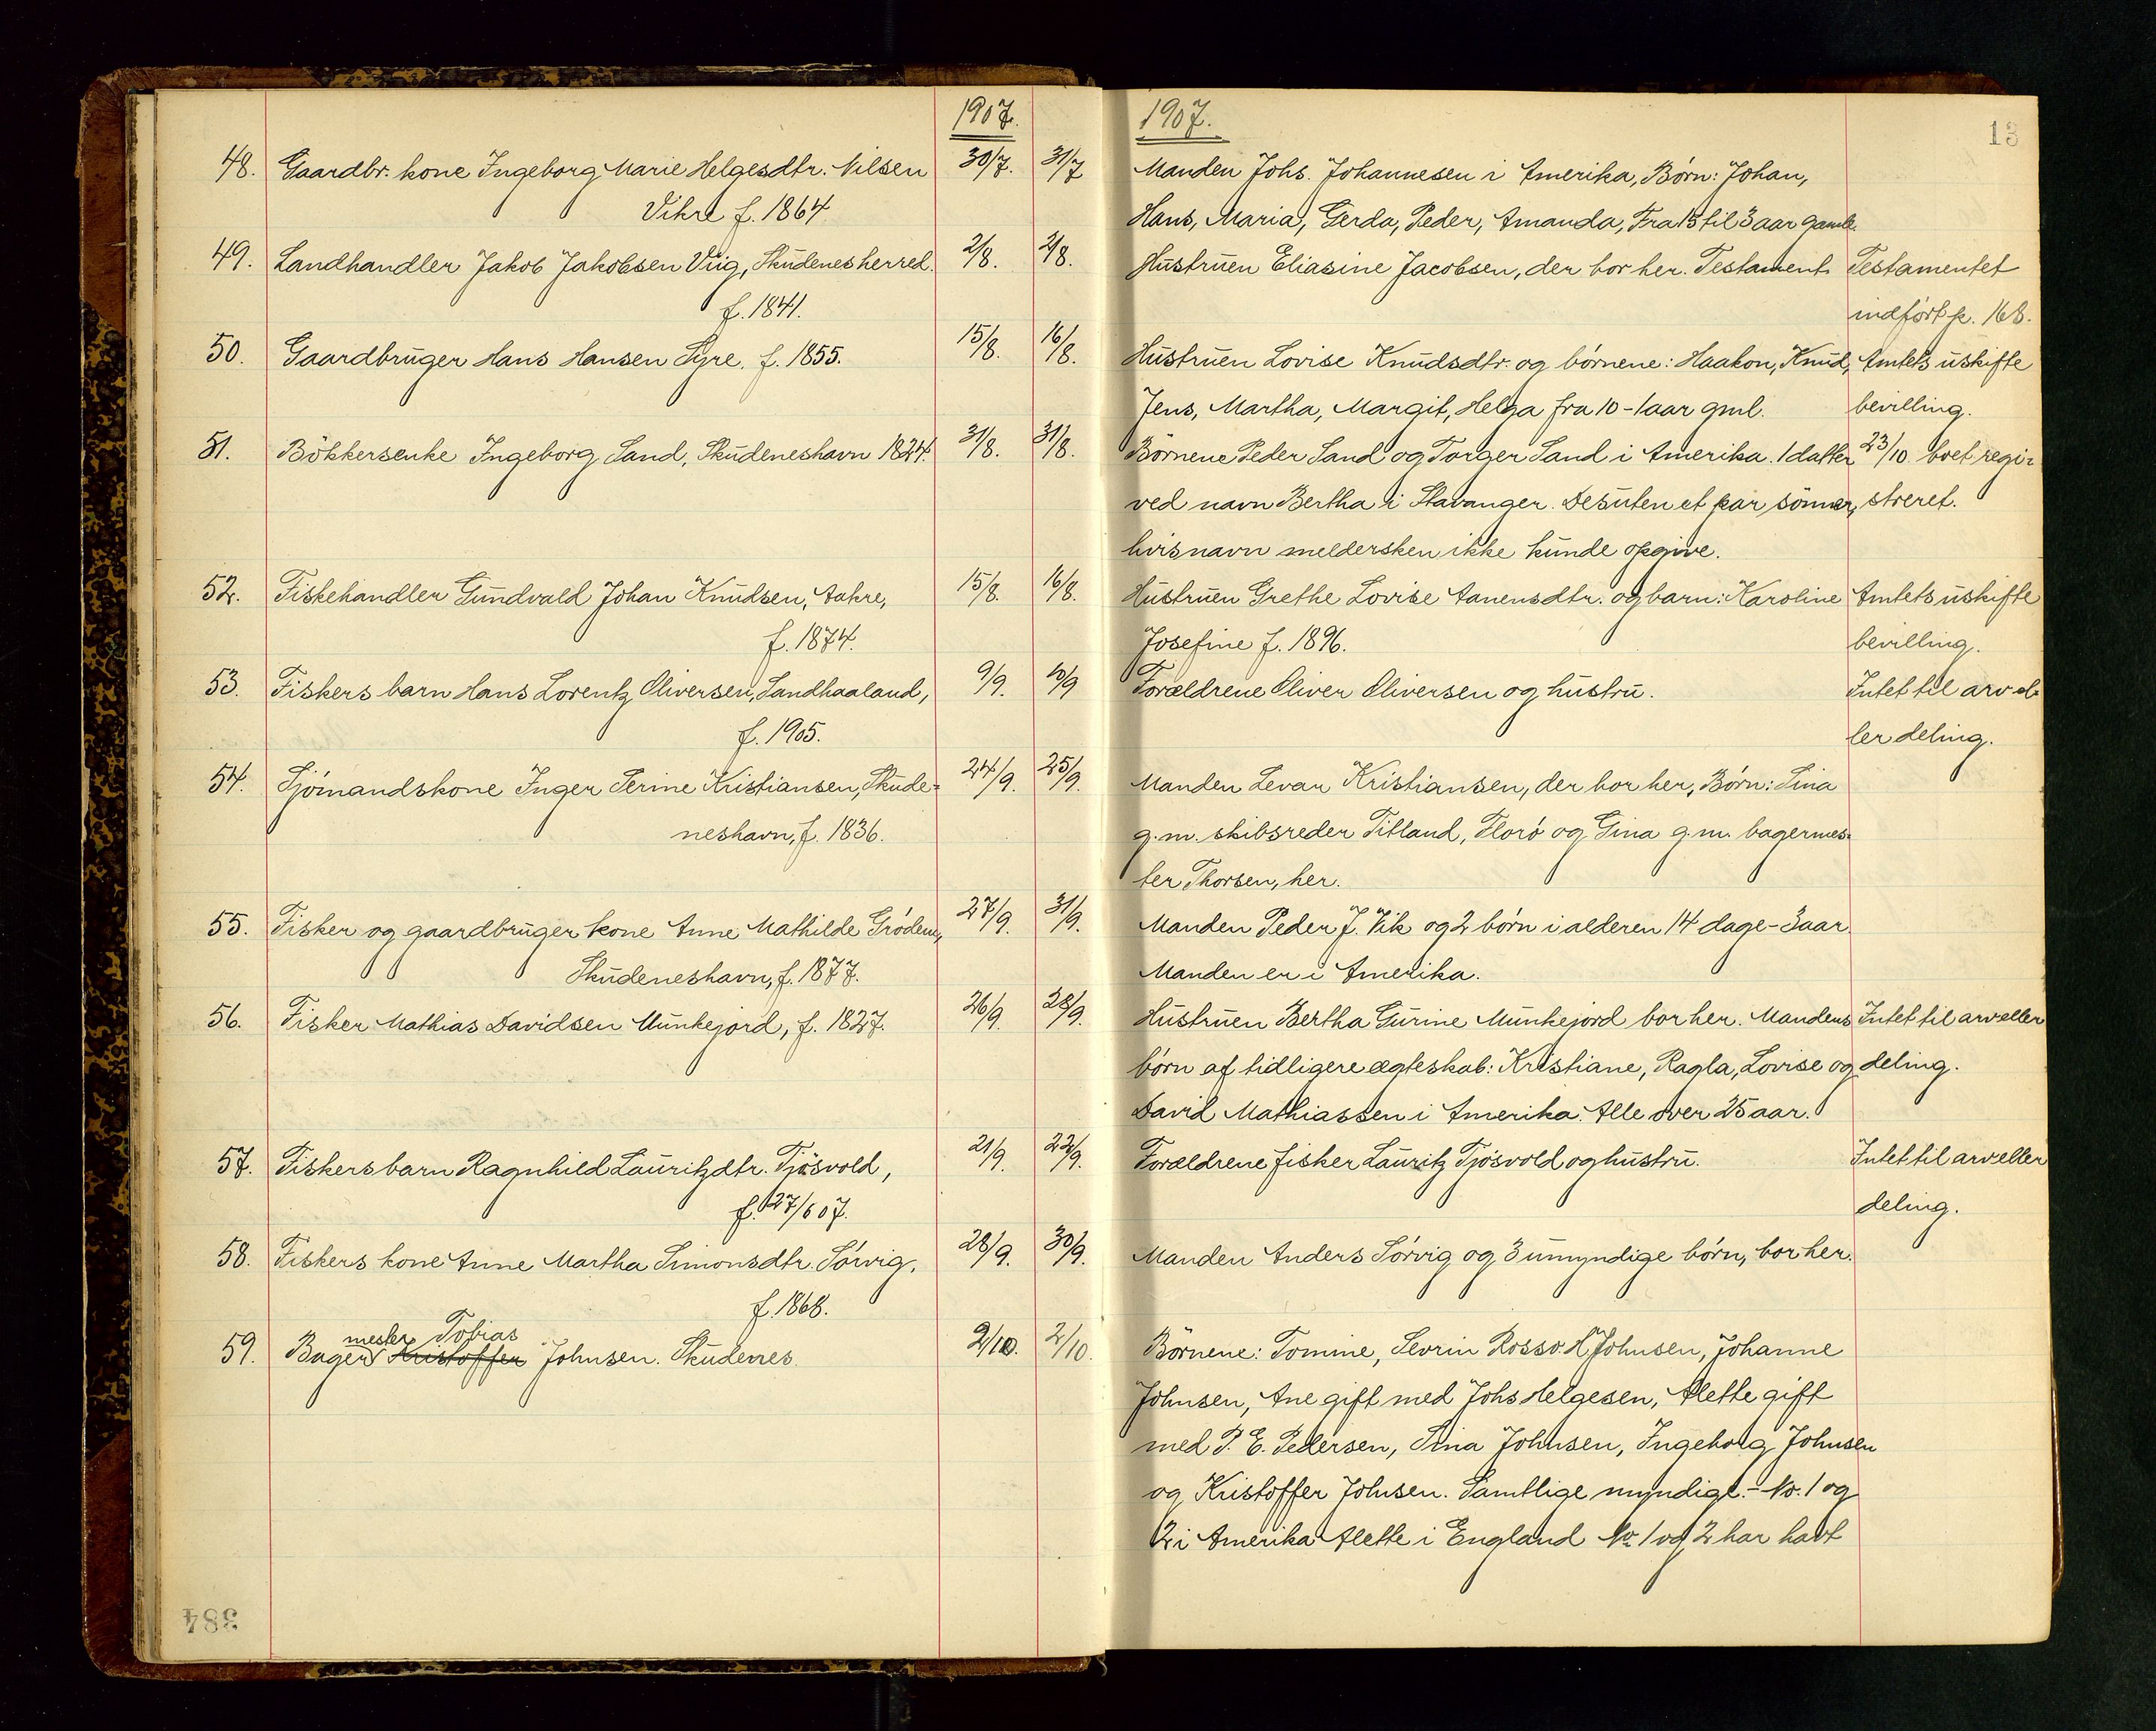 1907.
48. Gaardbr. kone Ingeborg Marie Helgesdtr. Nilsen 30/7. 31/7
Vikre f. 1864
49. Landhandler Jakob Jakobsen Viig, Skudenesherred. 2/8. 2/8.
f. 1841.
50. Gaardbruger Hans Hansen Syre. f. 1855. 15/8. 16/8.
51. Bökkerenke Ingeborg Sand, Skudeneshavn 1824. 31/8. 31/8.
52. Fiskehandler Gundvald Johan Knudsen, Aakre, 15/8. 16/8.
f. 1874.
53. Fiskers barn Hans Lorentz Oliversen, Sandhaaland, 9/9. 10/9
f. 1905.
54. Sjömandskone Inger Serine Kristiansen, Skude= 24/9. 25/9.
neshavn, f. 1836.
55. Fisker og gaardbruger kone Anne Mathilde Grödem, 27/9. 31/9.
Skudeneshavn, f. 1877.
56. Fisker Mathias Davidsen Munkejord, f. 1827. 26/9. 28/9.
57. Fiskers barn Ragnhild Lauritzdtr. Tjösvold, 21/9. 22/9.
f. 27/6 07.
58. Fiskers kone Anne Martha Simonsdtr. Sörvig. 28/9. 30/9.
f. 1868.
mester Tobias
59. Bager Kristoffer Johnsen. Skudenes. 2/10. 2/10.
384
1907.
13
Manden Johs. Johannesen i Amerika, Börn: Johan,
Hans, Maria, Gerda, Peder, Amanda, Fra 15 til 3 aar gamle.
Hustruen Eliasine Jacobsen, der bor her. Testament. Testamentet
indført p. 168.
Hustruen Lovise Knudsdtr. og börnene: Haakon, Knud, Amtets uskifte
Jens, Martha, Margit, Helga fra 10-1 aar gml. bevilling.
Börnene Peder Sand og Torger Sand i Amerika. 1 datter 23/10 boet regi=
ved navn Bertha i Stavanger. Desuten et par sönner, streret.
hvis navn meldersken ikke kunde opgive.
Hustruen Grethe Lovise Aanensdtr. og barn: Karoline Amtets uskifte
Josefine f. 1896. bevilling.
Forældrene Oliver Oliversen og hustru. Intet til arv el-
ler deling.
Manden Levar Kristiansen, der bor her, Börn: Sina
g. m. skibsreder Titland, Florö og Gina g. m. bagermes=
ter Thorsen, her.
Manden Peder J. Vik og 2 börn i alderen 14 dage-3 aar.
Manden er i Amerika.
Hustruen Bertha Gurine Munkejord bor her. Mandens Intet til arv eller
börn af tidligere ægteskab: Kristiane, Ragla, Lovise og deling.
David Mathiassen i Amerika. Alle over 25 aar.
Forældrene fisker Lauritz Tjösvold og hustru. Intet til arv eller
deling.
Manden Anders Sörvig og 3 umyndige börn, bor her.
Börnene: Tomine, Sevrin Rosso H Johnsen, Johanne
Johnsen, Ane gift med Johs Helgesen, Alette gift
med P. E. Pedersen, Sina Johnsen, Ingeborg Johnsen
og Kristoffer Johnsen. Samtlige myndige.- No. 1 og
2 i Amerika Alette i England No 1 og 2 har havt